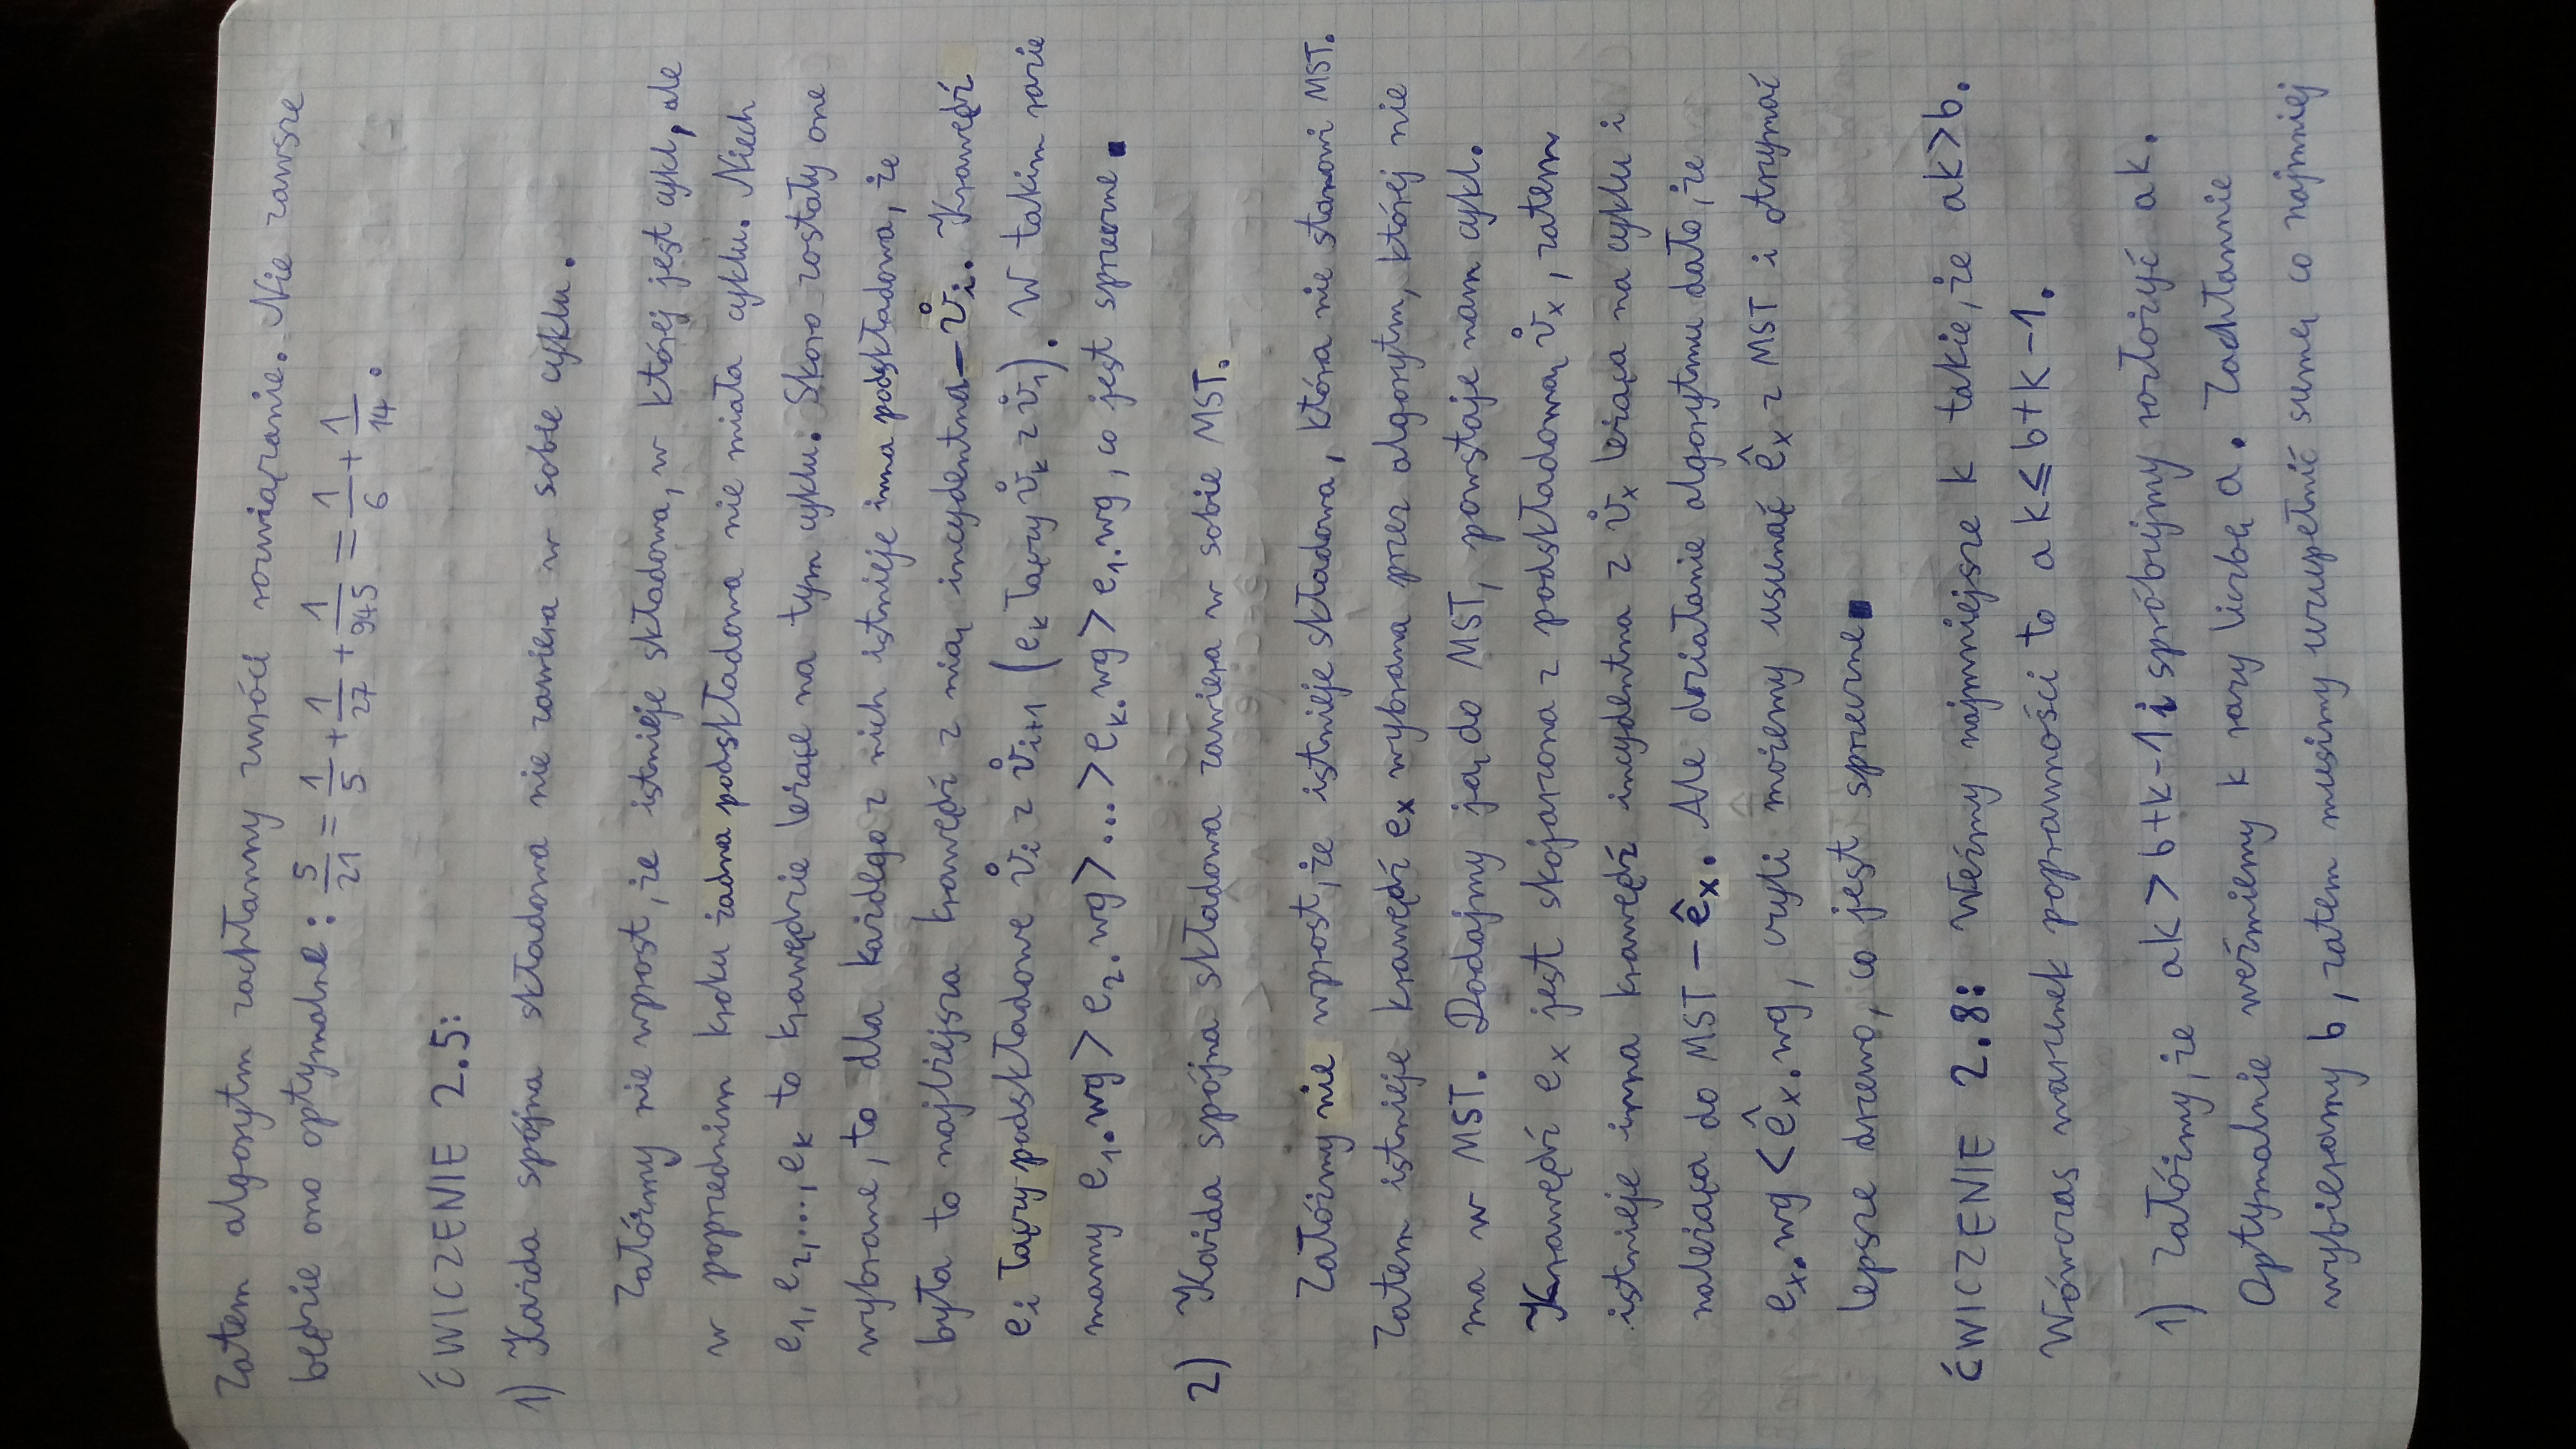 Zatem algorytm zachłanny zwróci rozwiązanie. Nie zawsze
będzie ono optymalne: 5/21 = 1/5 + 1/27 + 1/945 = 1/6 + 1/14.
ĆWICZENIE 2.5:
1) Każda spójna składowa nie zawiera w sobie cyklu.
Załóżmy nie wprost, że istnieje składowa, w której jest cykl, ale
w poprzednim kroku żadna podskładowa nie miała cyklu. Niech
e₁, e₂, ..., eₖ to krawędzie leżące na tym cyklu. Skoro zostały one
wybrane, to dla każdego z nich istnieje inna podskładowa, że
była to najlżejsza krawędź z nią incydentna – v̊ᵢ. Krawędź
eᵢ łączy podskładowe v̊ᵢ z v̊ᵢ₊₁ (eₖ łączy v̊ₖ z v̊₁). W takim razie
mamy e₁.wg > e₂.wg > ... > eₖ.wg > e₁.wg, co jest sprzeczne ■
2) Każda spójna składowa zawiera w sobie MST.
Załóżmy nie wprost, że istnieje składowa, która nie stanowi MST.
Zatem istnieje krawędź eₓ wybrana przez algorytm, której nie
ma w MST. Dodajmy ją do MST, powstaje nam cykl.
Krawędź eₓ jest skojarzona z podskładową v̊ₓ, zatem
istnieje inna krawędź incydentna z v̊ₓ leżąca na cyklu i
należąca do MST – êₓ. Ale działanie algorytmu dało, że
eₓ.wg < êₓ.wg, czyli możemy usunąć êₓ z MST i otrzymać
lepsze drzewo, co jest sprzeczne ■
ĆWICZENIE 2.8: Weźmy najmniejsze k takie, że ak > b.
Wówczas warunek poprawności to ak ≤ b + k - 1.
1) Załóżmy, że ak > b + k - 1 i spróbujmy rozłożyć ak.
Optymalnie weźmiemy k razy liczbę a. Zachłannie
wybieramy b, zatem musimy uzupełnić sumę co najmniej